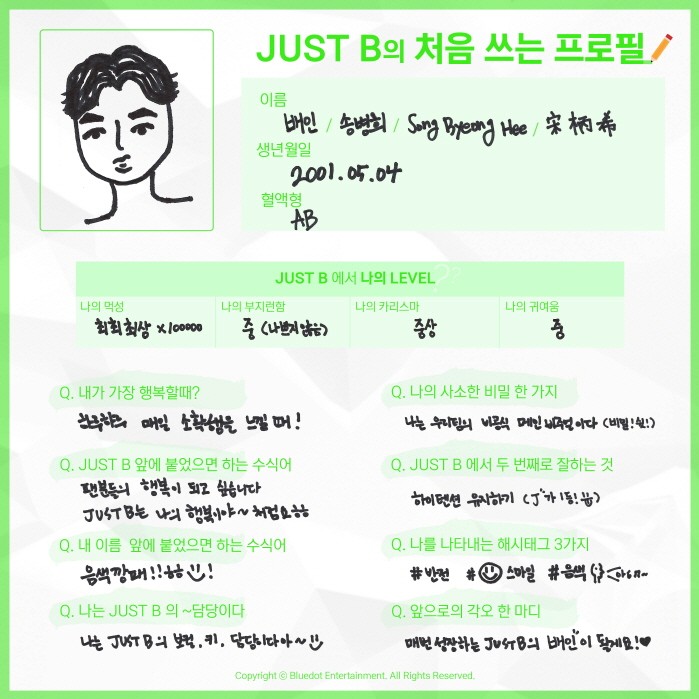 JUST B의 처음 쓰는 프로필
이름
배인 / 송병희 / Song Byeong Hee / 宋 柄 希
생년월일
2001.05.04
혈액형
AB
JUST B 에서 나의 LEVEL
나의 먹성
나의 부지런함
나의 카리스마
나의 귀여움
최최최상 x100000
중 (나쁘지않음)
중상
중
Q. 내가 가장 행복할때?
하루하루 매일 소확행을 느낄 때!
Q. 나의 사소한 비밀 한 가지
나는 우리팀의 비공식 메인비주얼이다 (비밀!쉿!)
Q. JUST B 앞에 붙었으면 하는 수식어
팬분들의 행복이 되고 싶습니다
JUST B는 나의 행복이야~ 처럼요ㅎㅎ
Q. JUST B 에서 두 번째로 잘하는 것
하이텐션 유지하기 (J가 1등!)
Q. 내 이름 앞에 붙었으면 하는 수식어
음색깡패!!ㅎㅎ!
Q. 나를 나타내는 해시태그 3가지
#반전 #스마일 #음색
Q. 나는 JUST B 의 ~담당이다
나는 JUST B의 보컬, 키, 담당이다아~
Q. 앞으로의 각오 한 마디
매번 성장하는 JUST B의 배인이 될게요!♥
Copyright ⓒ Bluedot Entertainment. All Rights Reserved.